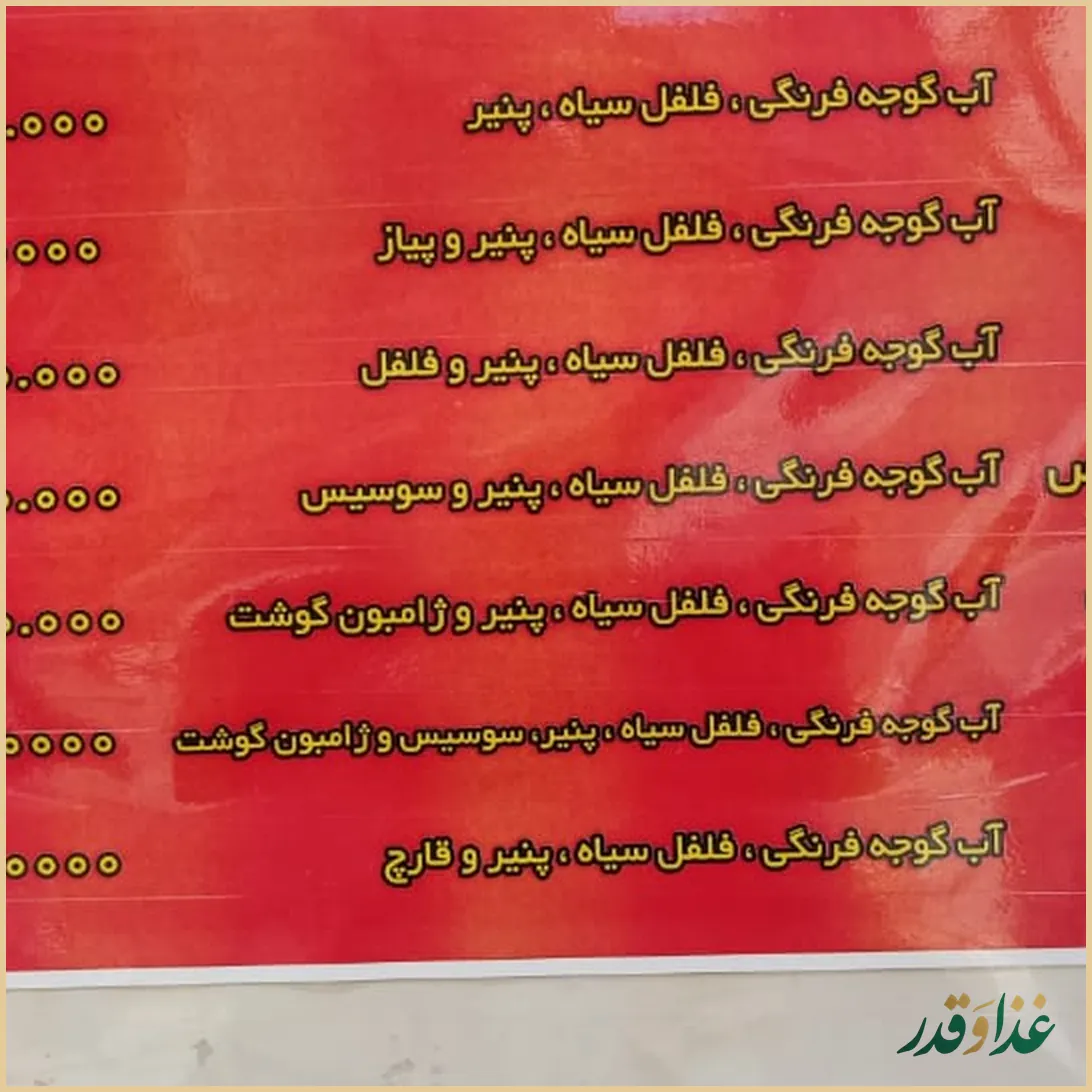 آب گوجه فرنگی ، فلفل سیاه ، پنیر
آب گوجه فرنگی ، فلفل سیاه ، پنیر و پیاز
آب گوجه فرنگی ، فلفل سیاه ، پنیر و فلفل
آب گوجه فرنگی ، فلفل سیاه ، پنیر و سوسیس
آب گوجه فرنگی ، فلفل سیاه ، پنیر و ژامبون گوشت
آب گوجه فرنگی ، فلفل سیاه ، پنیر، سوسیس و ژامبون گوشت
آب گوجه فرنگی ، فلفل سیاه ، پنیر و قارچ
غذا و قدر